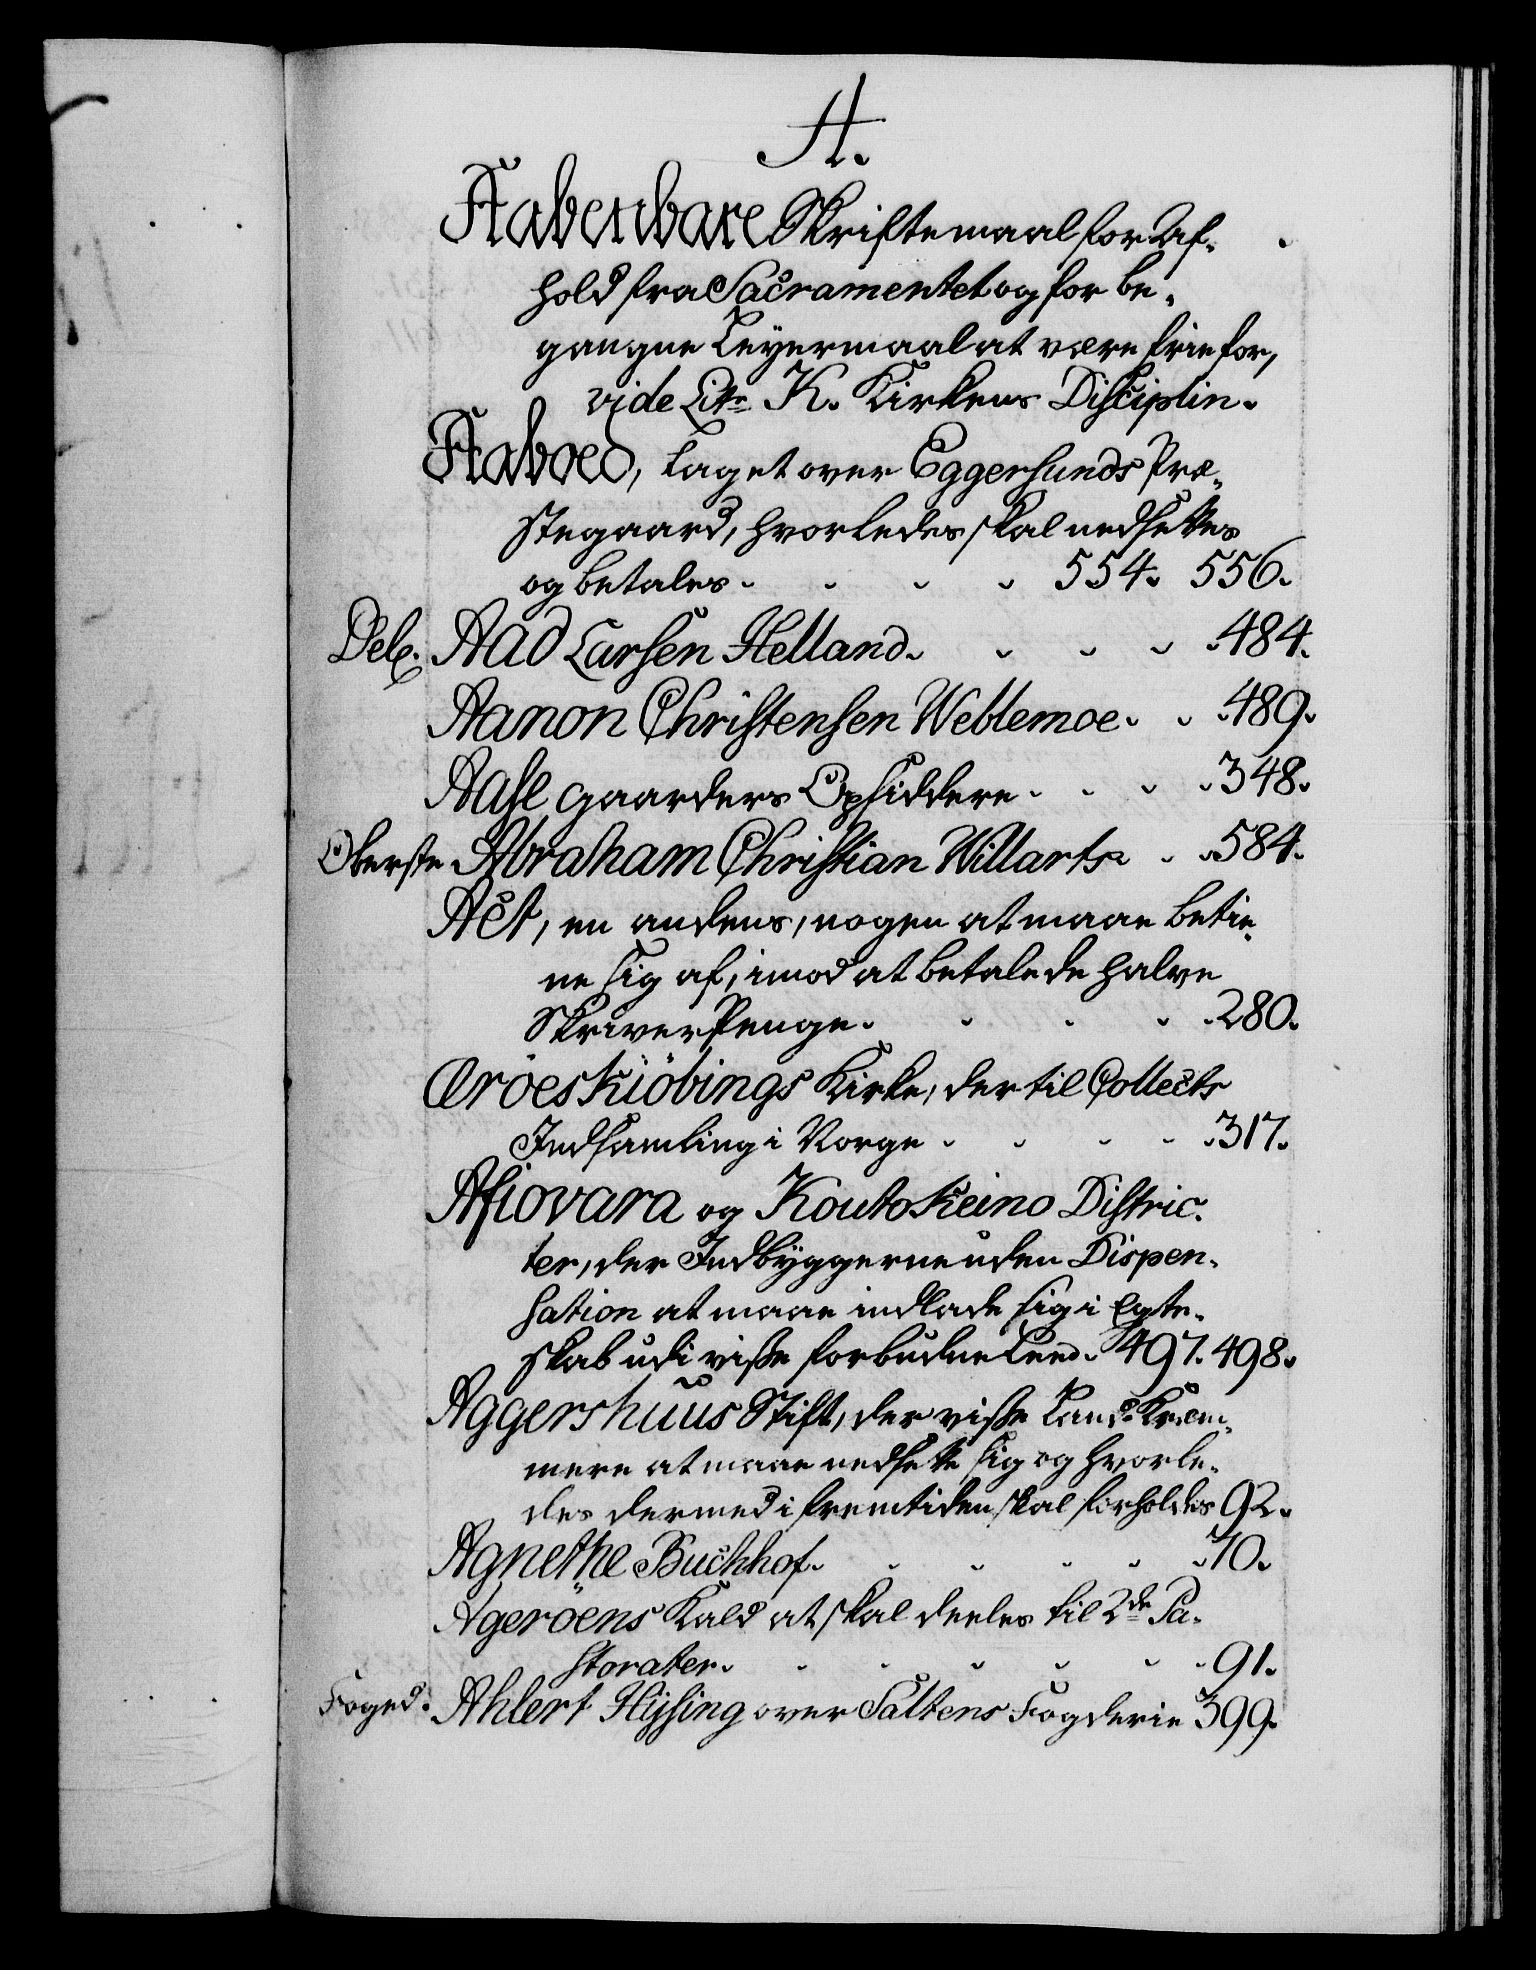 A.
Aabenbare Skriftemaal for Af-
hold fra Sacramentet og for be-
gangne Leyermaal at være frie for,
vide Litr. K. Kirkens Disciplin.
Aaboed, taget over Eggersunds Præ-
stegaard, hvorledes skal nedsettes
og betales. 554. 556.
Aad Larsen Helland. 484.
Aanon Christensen Weblemoe. 489.
Aase Gaarders Opsiddere. 348.
Oberste Abraham Christian Willarts 584.
Act, en andens, nogen at maae betie-
ne sig af, imod at betale de halve
Skriver Penge. 280.
Æröeskiöbings Kirke, dertil Collects
Indsamling i Norge. 317.
Afiovara og Koutokeino Distric-
ter, der Indbyggerne uden Dispen-
sation at maae indlade sig i Egte-
skab udi visse forbudne Leed. 497. 498.
Aggershuus Stift, der visse Land-Kræm-
mere at maae nedsette sig og hvorle-
des dermed i fremtiden skal forholdes 92.
Agnethe Buchhof. 70.
Ageröens Kald at skal deeles til 2de Pa-
storater. 91.
Foged. Ahlert Hysing over Saltens Fogderie 399.